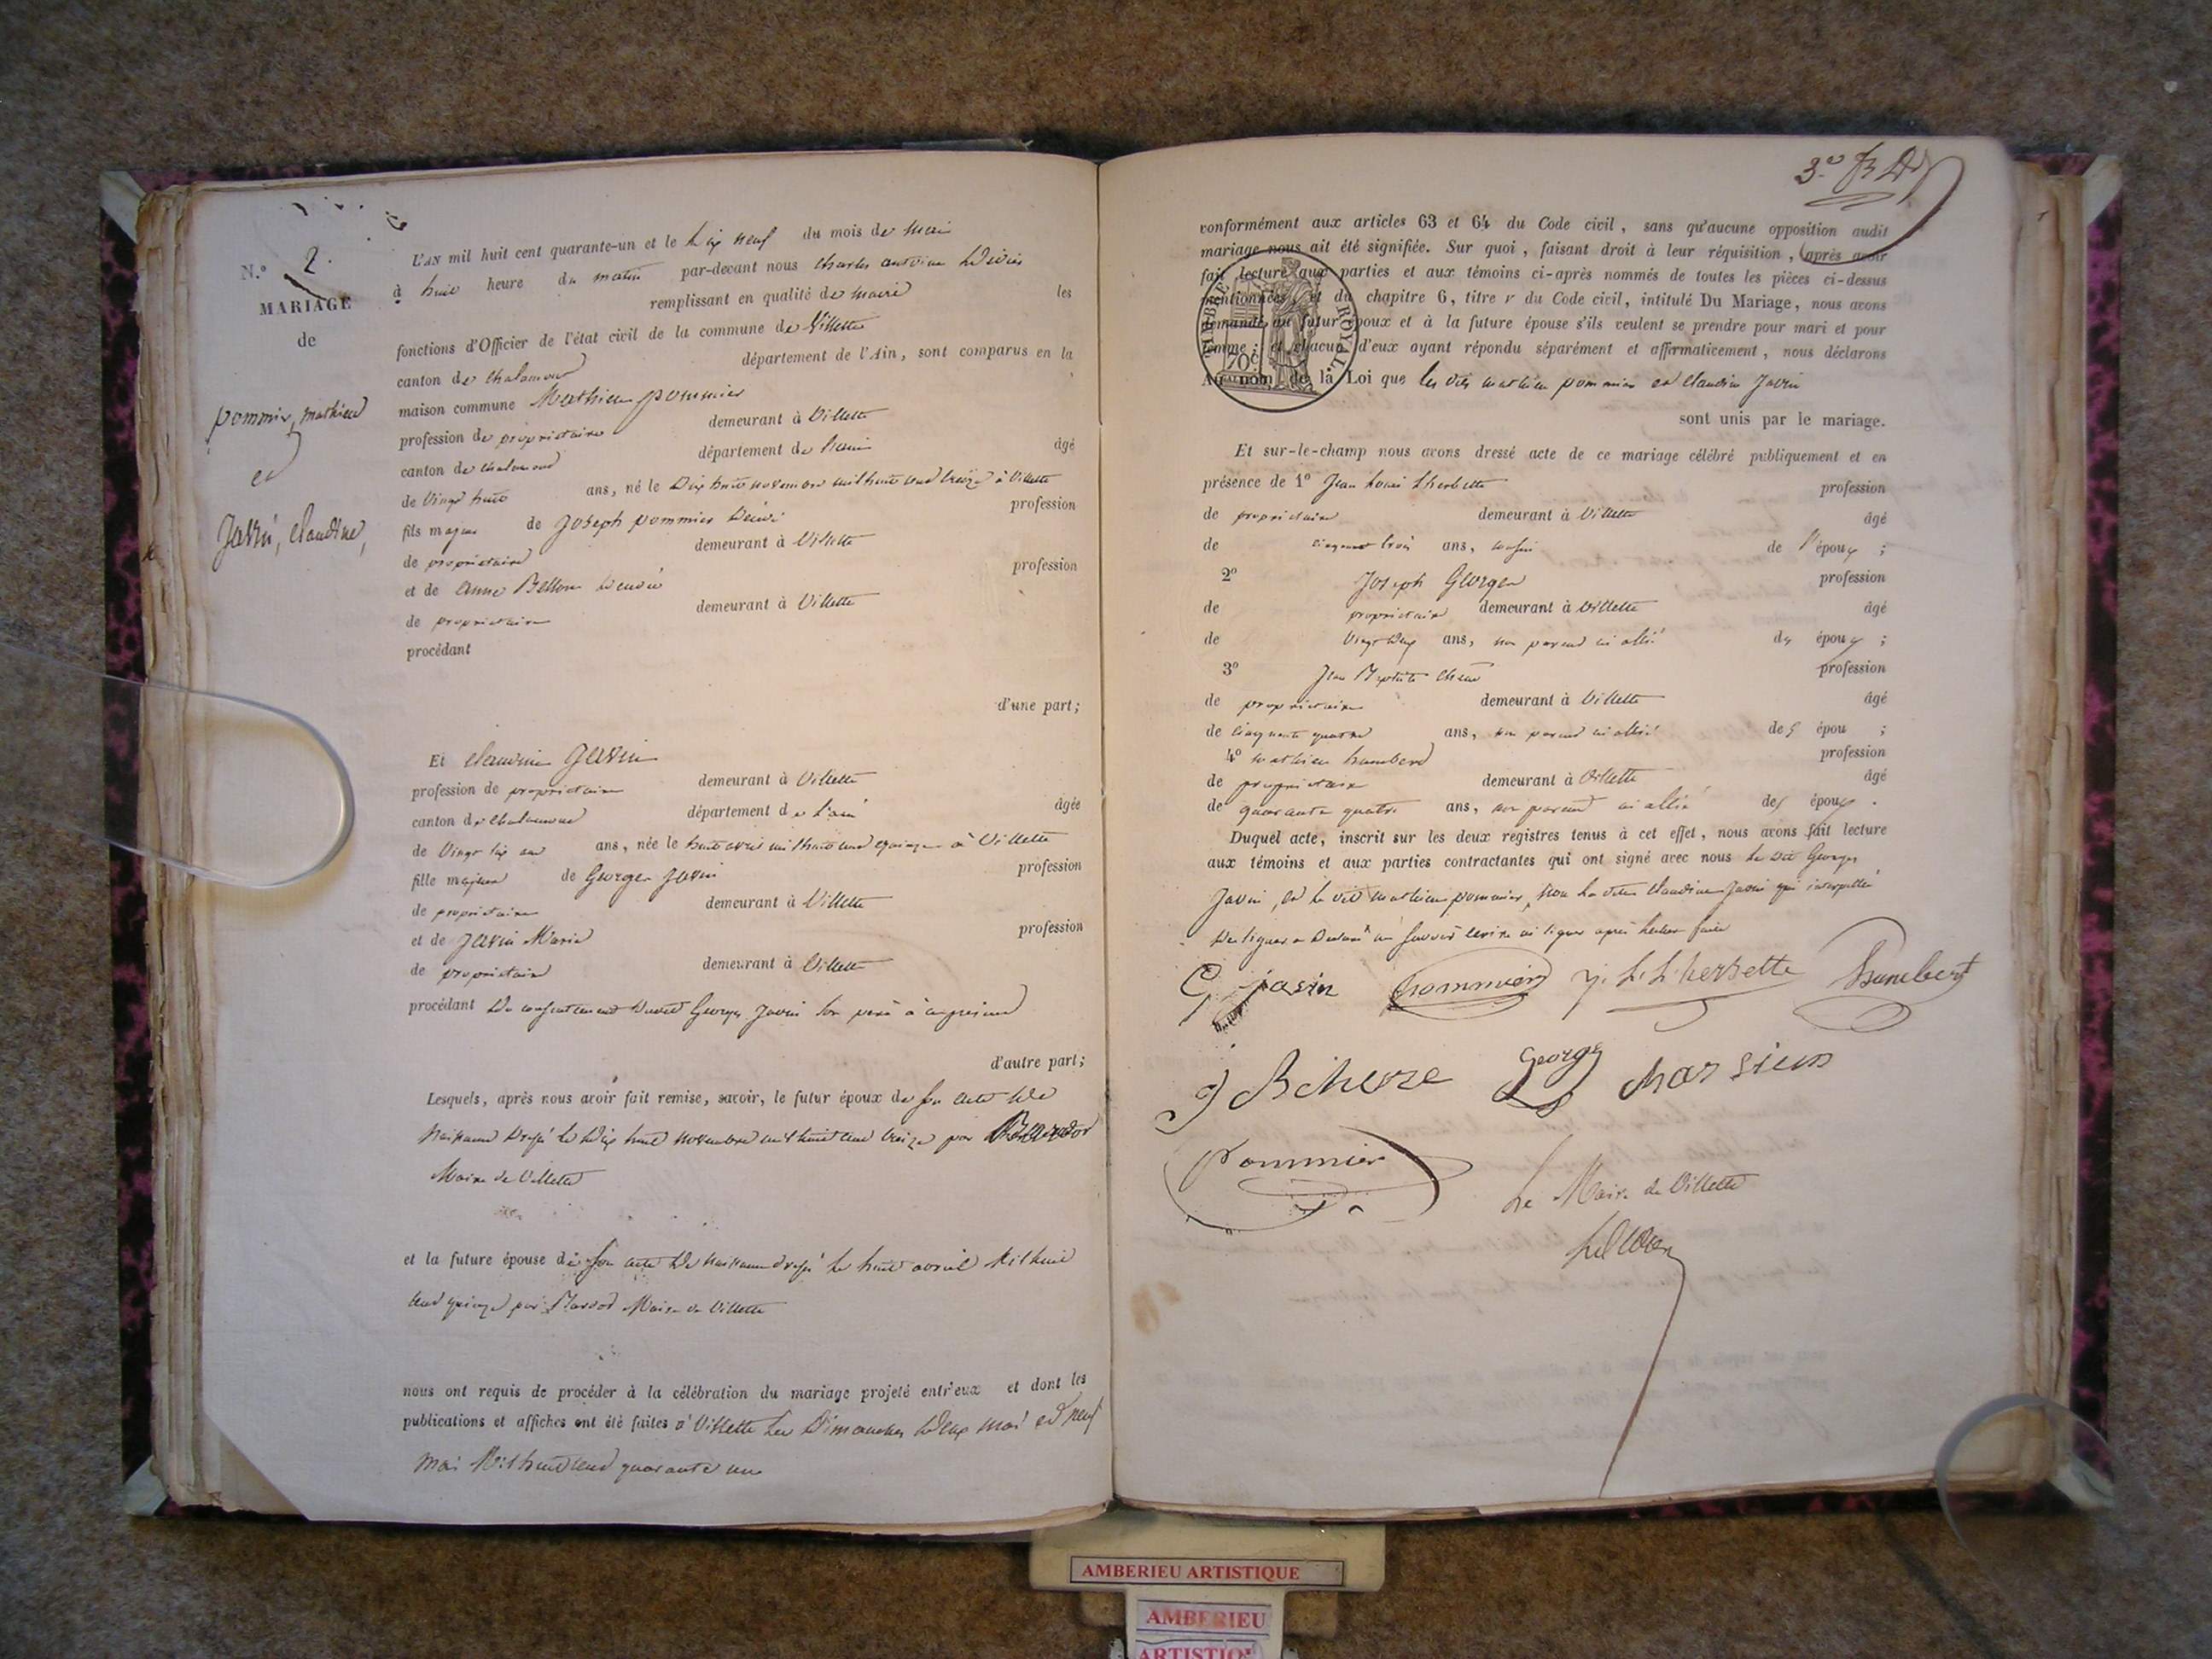 N.º 2.
MARIAGE
de
pommier, mathieu
et
Javin, Claudine,
L'AN mil huit cent quarante-un et le dix neuf du mois de mai
à huit heure du matin par-devant nous charles antoine
remplissant en qualité de maire les
fonctions d'Officier de l'état civil de la commune de Villette
canton de chalamont département de l'Ain, sont comparus en la
maison commune Mathieu pommier
profession de propriétaire demeurant à Villette
canton de chalamont département de l'ain âgé
de Vingt huit ans, né le Dix huit novembre mil huit cent treize à Villette
fils majeur de Joseph pommier profession
de propriétaire demeurant à Villette
et de anne profession
de propriétaire demeurant à Villette
procédant
d'une part;
Et claudine Javin
profession de propriétaire demeurant à Villette
canton de chalamont département de l'ain âgée
de Vingt six ans ans, née le huit avril mil huit cent quinze à Villette
fille majeure de George Javin profession
de propriétaire demeurant à Villette
et de Javin Maria profession
de propriétaire demeurant à Villette
procédant du consentement dudit Georges Javin son père à ce présent
d'autre part;
Lesquels, après nous avoir fait remise, savoir, le futur époux de son acte de
naissance dressé le Dix huit novembre mil huit cent treize par
Maire de Villette
et la future épouse de son acte de naissance dressé le huit avril Mil huit
cent quinze par Maire de Villette
nous ont requis de procéder à la célébration du mariage projeté entr'eux et dont les
publications et affiches ont été faites à Villette les Dimanches deux mai et neuf
mai Mil huit cent quarante un
3.e
conformément aux articles 63 et 64 du Code civil, sans qu'aucune opposition audit
mariage nous ait été signifiée. Sur quoi, faisant droit à leur réquisition, (après avoir
fait lecture aux parties et aux témoins ci-après nommés de toutes les pièces ci-dessus
mentionnées, et du chapitre 6, titre v du Code civil, intitulé Du Mariage, nous avons
demandé au futur époux et à la future épouse s'ils veulent se prendre pour mari et pour
femme; et chacun d'eux ayant répondu séparément et affirmativement, nous déclarons
Au nom de la Loi que les dits mathieu pommier et claudine Javin
TIMBRE ROYAL
70c
sont unis par le mariage.
Et sur-le-champ nous avons dressé acte de ce mariage célébré publiquement et en
présence de 1º Jean Louis Lherbette profession
de propriétaire demeurant à Villette âgé
de cinquante trois ans, cousin de l'époux ;
2º Joseph George profession
de propriétaire demeurant à Villette âgé
de Vingt deux ans, non parent ni allié des époux ;
3º Jean Baptiste profession
de propriétaire demeurant à Villette âgé
de cinquante quatre ans, non parent ni allié des épou ;
4º mathieu humbert profession
de propriétaire demeurant à Villette âgé
de quarante quatre ans, non parent ni allié des époux.
Duquel acte, inscrit sur les deux registres tenus à cet effet, nous avons fait lecture
aux témoins et aux parties contractantes qui ont signé avec nous le dit Georges
Javin, et le dit mathieu pommier, non la dite claudine Javin qui interpellée
de signer a déclaré ne savoir écrire ni signer après lecture faite
G. javin pommier j. L. Lherbette humbert
George
Pommier
Le Maire de Villette
AMBERIEU ARTISTIQUE
AMBERIEU
ARTISTIQ